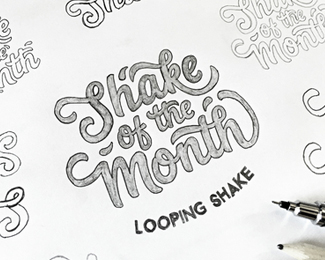 Shake
of the
Month
LOOPING SHAKE
Shake
of the
Month